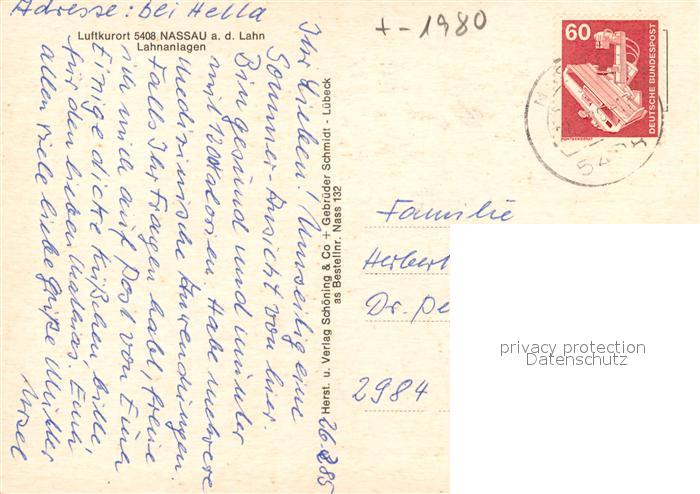 Adresse: bei Hella
+- 1980
Luftkurort 5408 NASSAU a. d. Lahn
Lahnanlagen
Ihr Lieben! Umseitig eine
Sommer-Ansicht von hier.
Bin gesund und
mit Habe mehrere
medizinische Anwendungen.
Falls Ihr Fragen habt, freue
ich mich auf Post von Euch
Einige dicke Küßchen bitte,
für den lieben Mathias. Euch
allen viele liebe Grüße
Ursel
26.8.85
Herst. u. Verlag Schöning & Co + Gebrüder Schmidt - Lübeck
as Bestellnr. Nass 132
60
DEUTSCHE BUNDESPOST
RÖNTGENGERÄT
5408
Familie
Herbert
Dr. De
2984
privacy protection
Datenschutz